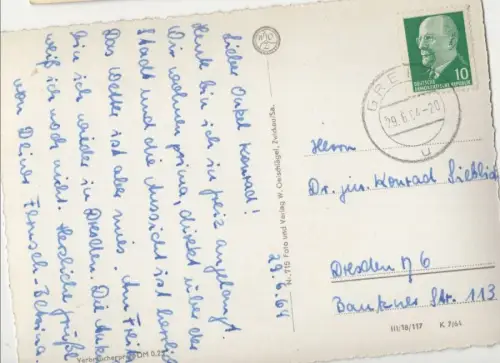 Lieber Onkel Konrad!
29.6.64
Heute bin ich in Greiz angelangt.
Wir wohnen prima, direkt über der
Stadt und die Aussicht ist herrlich
Das Wetter ist aber mies. Am Frei
bin ich wieder in Dresden. Die
weiß ich noch nicht. Herzliche Grüße
von Deiner
Verbraucherpreis DM 0,2
Nr. 715 Foto und Verlag W. Oelschlägel, Zwickau/Sa.
DEUTSCHE
DEMOKRATISCHE REPUBLIK
10
GREIZ
29.6.64-20
u
Herrn
Dr. jur. Konrad Lieblich
Dresden N 6
Bautzner Str. 113
III/18/117 K 7/64